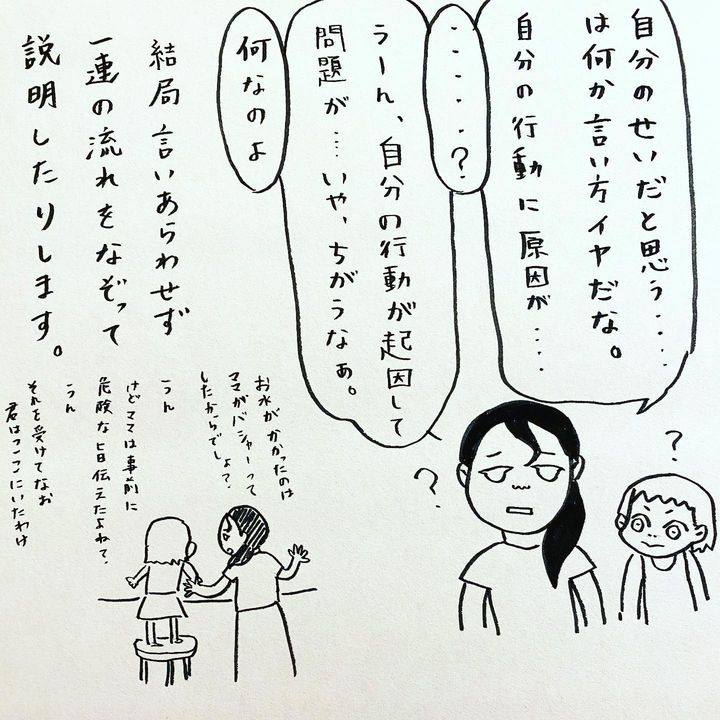 自分のせいだと思う....
は何か言い方イヤだな。
自分の行動に原因が....
.....?
うーん、自分の行動が起因して
問題が....いや、ちがうなぁ。
何なのよ
結局 言いあらわせず
一連の流れをなぞって
説明したりします。
?
?
お水がかかったのは
ママがバシャーって
したからでしょ?
うん
けどママは事前に
危険な旨伝えたよね?
うん
それを受けてなお
君はここにいたわけ